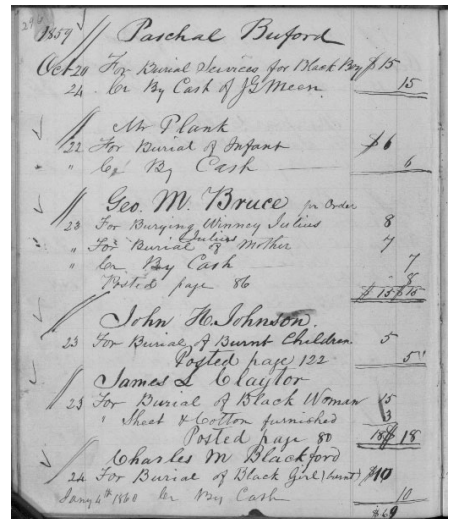 296
1859 // Paschal Buford
Oct 20 For Burial Services for Black Boy $15
24 Cr By Cash of J G Meem 15
// Mr Plank
22 For Burial of Infant $6
" Cr By Cash 6
// Geo. M. Bruce pr Order
23 For Burying Winney Julius 8
" For Burial of Julius Mother 7
" Cr By Cash 7
Posted page 86 8
$15 $15
// John H. Johnson.
23 For Burial of Burnt Children 5
Posted page 122 5
// James L Claytor
23 For Burial of Black Woman 15
" Sheet & Cotton furnished 3
Posted page 80 18 $18
// Charles M Blackford
24 For Burial of Black Girl (burnt) $10
Jany 4th 1860 Cr By Cash 10
$69